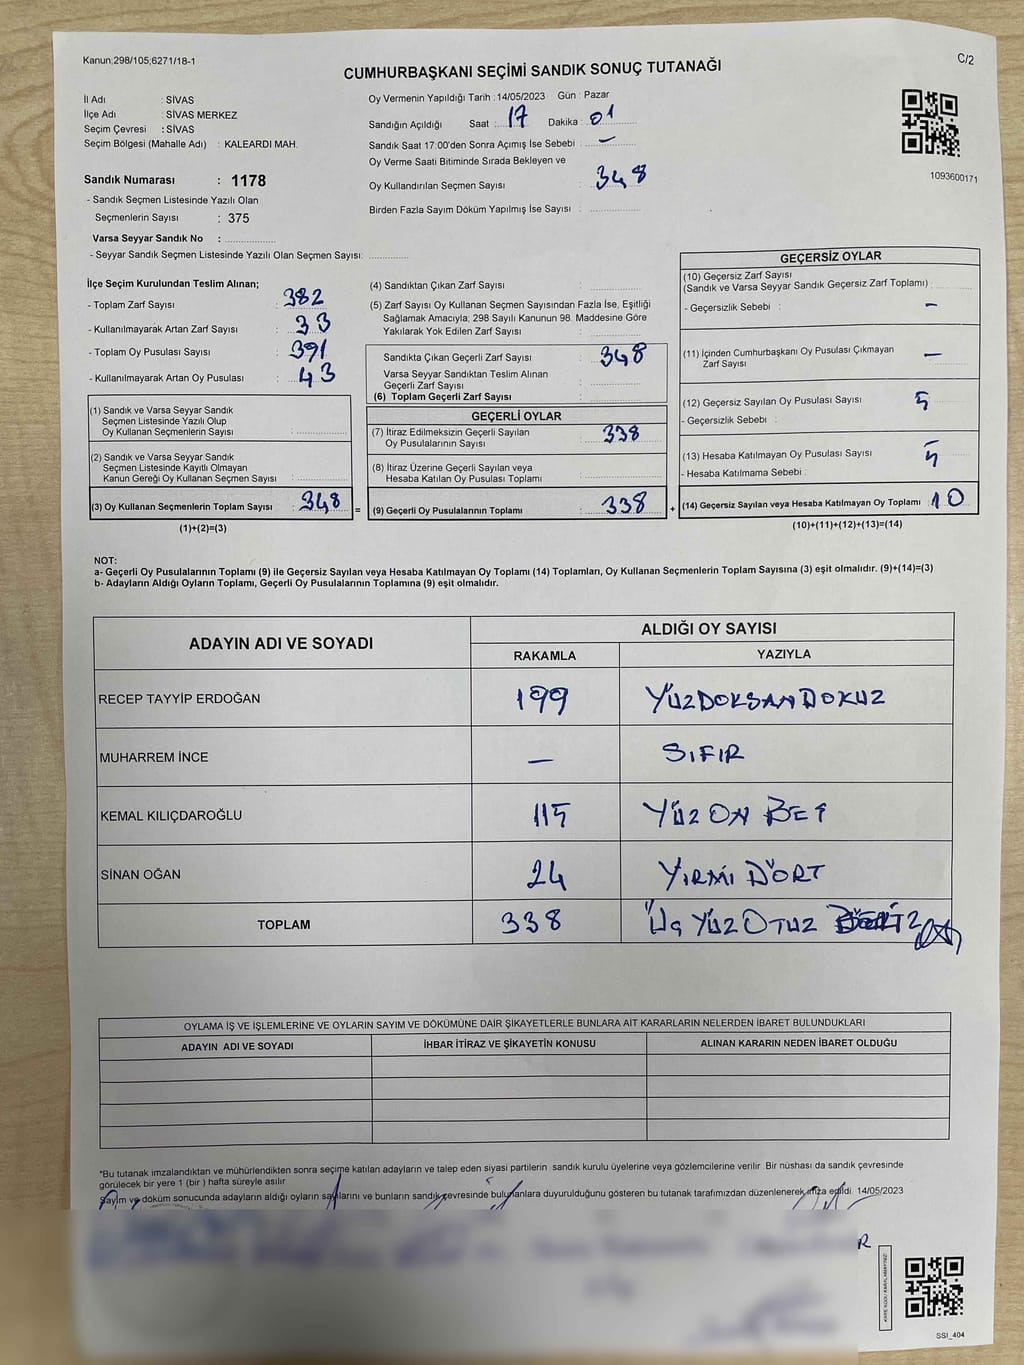 Kanun;298/105;6271/18-1
C/2
CUMHURBAŞKANI SEÇİMİ SANDIK SONUÇ TUTANAĞI
İl Adı : SİVAS
İlçe Adı : SİVAS MERKEZ
Seçim Çevresi : SİVAS
Seçim Bölgesi (Mahalle Adı) : KALEARDI MAH.
Sandık Numarası : 1178
- Sandık Seçmen Listesinde Yazılı Olan
Seçmenlerin Sayısı : 375
Varsa Seyyar Sandık No :
- Seyyar Sandık Seçmen Listesinde Yazılı Olan Seçmen Sayısı:
Oy Vermenin Yapıldığı Tarih :14/05/2023 Gün : Pazar
Sandığın Açıldığı Saat : 17 Dakika : 01
Sandık Saat 17:00'den Sonra Açımış İse Sebebi : —
Oy Verme Saati Bitiminde Sırada Bekleyen ve
Oy Kullandırılan Seçmen Sayısı : 348
Birden Fazla Sayım Döküm Yapılmış İse Sayısı :
1093600171
İlçe Seçim Kurulundan Teslim Alınan;
- Toplam Zarf Sayısı : 382
- Kullanılmayarak Artan Zarf Sayısı : 33
- Toplam Oy Pusulası Sayısı : 391
- Kullanılmayarak Artan Oy Pusulası : 43
(1) Sandık ve Varsa Seyyar Sandık
Seçmen Listesinde Yazılı Olup
Oy Kullanan Seçmenlerin Sayısı :
(2) Sandık ve Varsa Seyyar Sandık
Seçmen Listesinde Kayıtlı Olmayan
Kanun Gereği Oy Kullanan Seçmen Sayısı :
(3) Oy Kullanan Seçmenlerin Toplam Sayısı : 348 =
(1)+(2)=(3)
(4) Sandıktan Çıkan Zarf Sayısı :
(5) Zarf Sayısı Oy Kullanan Seçmen Sayısından Fazla İse, Eşitliği
Sağlamak Amacıyla; 298 Sayılı Kanunun 98. Maddesine Göre
Yakılarak Yok Edilen Zarf Sayısı :
Sandıkta Çıkan Geçerli Zarf Sayısı : 348
Varsa Seyyar Sandıktan Teslim Alınan
Geçerli Zarf Sayısı :
(6) Toplam Geçerli Zarf Sayısı :
GEÇERLİ OYLAR
(7) İtiraz Edilmeksizin Geçerli Sayılan
Oy Pusulalarının Sayısı : 338
(8) İtiraz Üzerine Geçerli Sayılan veya
Hesaba Katılan Oy Pusulası Toplamı :
(9) Geçerli Oy Pusulalarının Toplamı : 338 +
GEÇERSİZ OYLAR
(10) Geçersiz Zarf Sayısı
(Sandık ve Varsa Seyyar Sandık Geçersiz Zarf Toplamı) :
- Geçersizlik Sebebi : —
(11) İçinden Cumhurbaşkanı Oy Pusulası Çıkmayan
Zarf Sayısı : —
(12) Geçersiz Sayılan Oy Pusulası Sayısı : 5
- Geçersizlik Sebebi :
(13) Hesaba Katılmayan Oy Pusulası Sayısı : 5
- Hesaba Katılmama Sebebi :
(14) Geçersiz Sayılan veya Hesaba Katılmayan Oy Toplamı : 10
(10)+(11)+(12)+(13)=(14)
NOT:
a- Geçerli Oy Pusulalarının Toplamı (9) ile Geçersiz Sayılan veya Hesaba Katılmayan Oy Toplamı (14) Toplamları, Oy Kullanan Seçmenlerin Toplam Sayısına (3) eşit olmalıdır. (9)+(14)=(3)
b- Adayların Aldığı Oyların Toplamı, Geçerli Oy Pusulalarının Toplamına (9) eşit olmalıdır.
ADAYIN ADI VE SOYADI
ALDIĞI OY SAYISI
RAKAMLA YAZIYLA
RECEP TAYYİP ERDOĞAN 199 YÜZDOKSANDOKUZ
MUHARREM İNCE — SIFIR
KEMAL KILIÇDAROĞLU 115 YÜZ ON BEŞ
SİNAN OĞAN 24 YİRMİ DÖRT
TOPLAM 338 ÜÇ YÜZ OTUZ
OYLAMA İŞ VE İŞLEMLERİNE VE OYLARIN SAYIM VE DÖKÜMÜNE DAİR ŞİKAYETLERLE BUNLARA AİT KARARLARIN NELERDEN İBARET BULUNDUKLARI
ADAYIN ADI VE SOYADI İHBAR İTİRAZ VE ŞİKAYETİN KONUSU ALINAN KARARIN NEDEN İBARET OLDUĞU
*Bu tutanak imzalandıktan ve mühürlendikten sonra seçime katılan adayların ve talep eden siyasi partilerin sandık kurulu üyelerine veya gözlemcilerine verilir. Bir nüshası da sandık çevresinde
görülecek bir yere 1 (bir ) hafta süreyle asılır
Sayım ve döküm sonucunda adayların aldığı oyların sayılarını ve bunların sandık çevresinde bulunanlara duyurulduğunu gösteren bu tutanak tarafımızdan düzenlenerek imza edildi. 14/05/2023
SSI_404